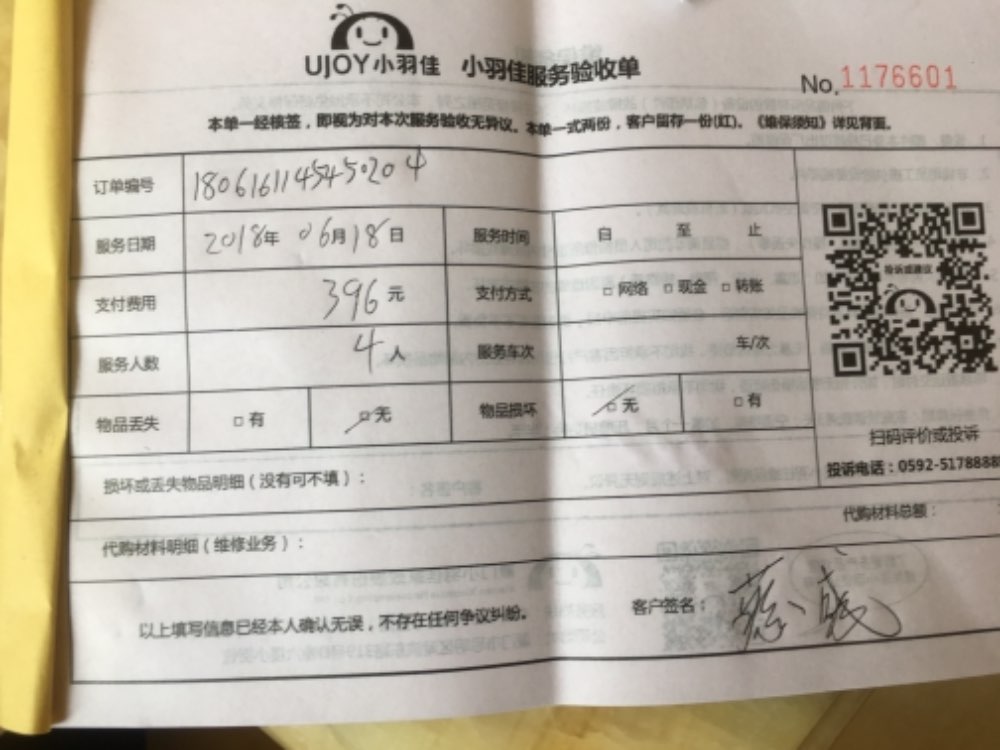 UJOY小羽佳 小羽佳服务验收单
No.1176601
本单一经核签，即视为对本次服务验收无异议。本单一式两份，客户留存一份(红)。《维保须知》详见背面。
订单编号 1806161145450204
服务日期 2018年 06月18日 服务时间 自 至 止
支付费用 396元 支付方式 □网络 □现金 □转账
服务人数 4人 服务车次 车/次
物品丢失 □有 □无 物品损坏 □无 □有
投诉或建议
扫码评价或投诉
投诉电话：0592-5178888
损坏或丢失物品明细（没有可不填）：
代购材料明细（维修业务）：
代购材料总额：
以上填写信息已经本人确认无误，不存在任何争议纠纷。
客户签名：